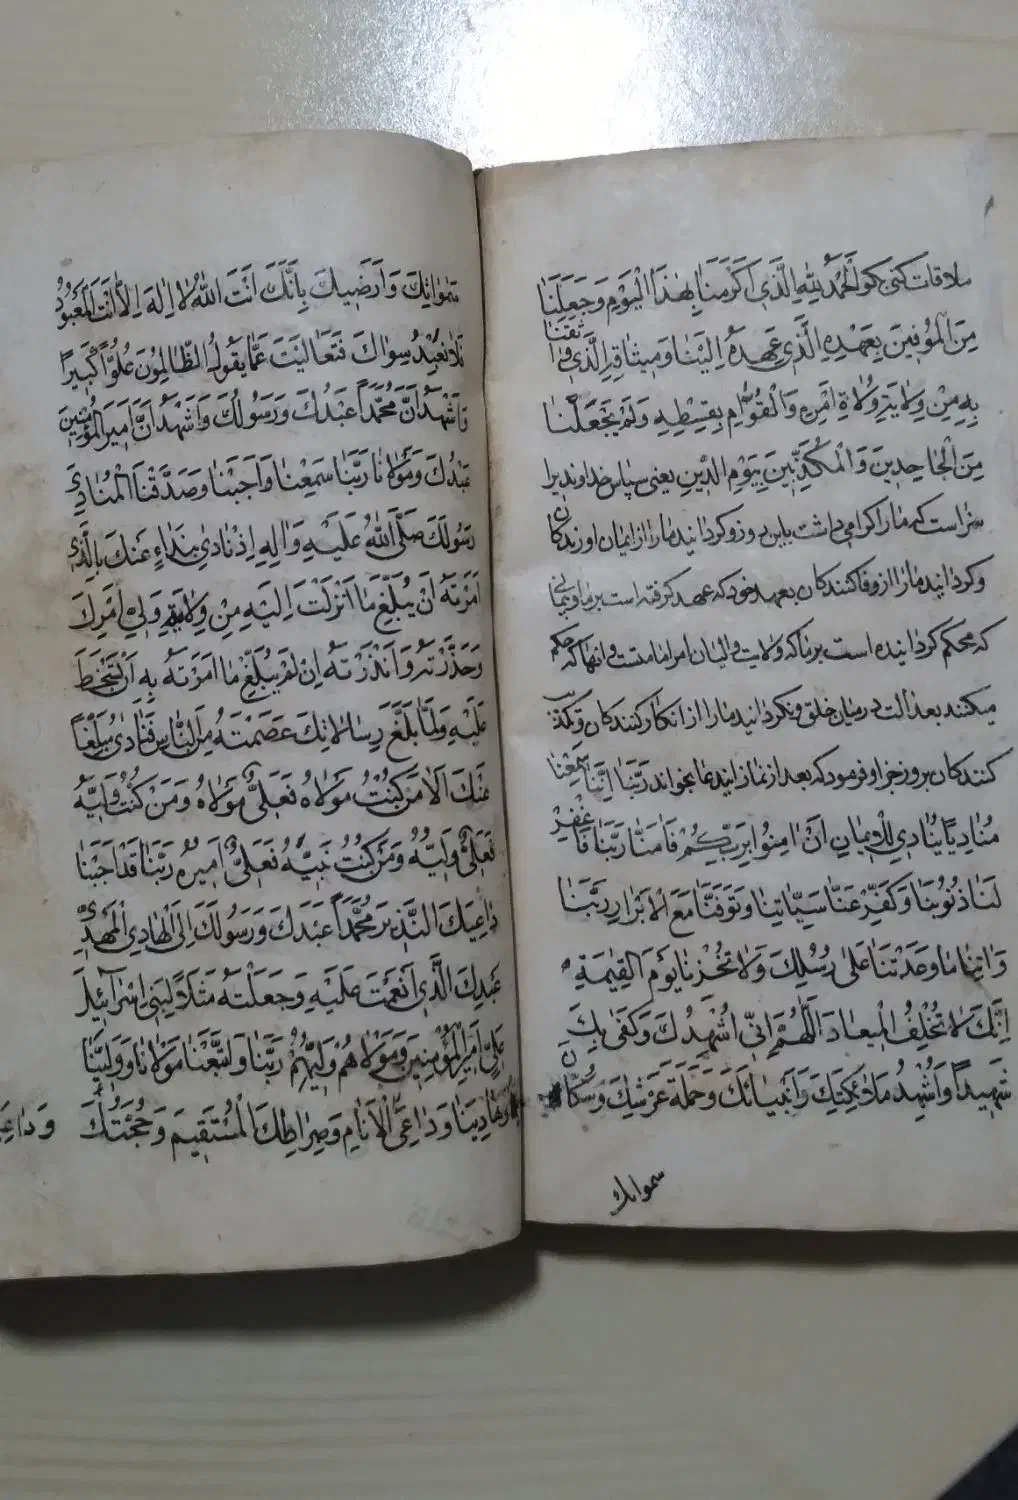 ملاقات کنی بکو الْحَمْدُ لِلّٰهِ الَّذِی اَكْرَمَنَا بِهٰذَا الْیَوْمِ وَجَعَلَنَا
مِنَ الْمُوفِینَ بِعَهْدِهِ الَّذِی عَهِدَهُ اِلَیْنَا وَمِیثَاقِهِ الَّذِی وَاثَقَنَا
بِهِ مِنْ وِلَایَةِ وُلَاةِ اَمْرِهِ وَالْقُوَّامِ بِقِسْطِهِ وَلَمْ یَجْعَلْنَا
مِنَ الْجَاحِدِینَ وَالْمُكَذِّبِینَ بِیَوْمِ الدِّینِ یعنی سپاس خداوندیرا
سزاست که مارا کرامی داشت باین روز و کردانید مارا از ایمان اورندکان
و کردانید مارا از وفا کنندکان بعهد خود که عهد کرفته است بر ما و پیمانی
که محکم کردانیده است بر ما که ولایت والیان امر امامت و انها که حکم
میکنند بعدالت در میان خلق و نکردانید مارا از انکار کنندکان و تکذیب
کنندکان بروز جزا و فرمود که بعد از نماز ایندعا بخواند رَبَّنَا اِنَّنَا سَمِعْنَا
مُنَادِیًا یُنَادِی لِلْاِیمَانِ اَنْ اٰمِنُوا بِرَبِّكُمْ فَاٰمَنَّا رَبَّنَا فَاغْفِرْ
لَنَا ذُنُوبَنَا وَكَفِّرْ عَنَّا سَیِّاٰتِنَا وَتَوَفَّنَا مَعَ الْاَبْرَارِ رَبَّنَا
وَاٰتِنَا مَا وَعَدْتَنَا عَلٰی رُسُلِكَ وَلَا تُخْزِنَا یَوْمَ الْقِیٰمَةِ
اِنَّكَ لَا تُخْلِفُ الْمِیعَادَ اَللّٰهُمَّ اِنِّی اُشْهِدُكَ وَكَفٰی بِكَ
شَهِیدًا وَاُشْهِدُ مَلَائِكَتَكَ وَاَنْبِیَائَكَ وَحَمَلَةَ عَرْشِكَ وَسُكَّانَ
سمواتك
سَمٰوَاتِكَ وَاَرَضِیكَ بِاَنَّكَ اَنْتَ اللّٰهُ لَا اِلٰهَ اِلَّا اَنْتَ الْمَعْبُودُ
فَلَا نَعْبُدُ سِوَاكَ فَتَعَالَیْتَ عَمَّا یَقُولُ الظَّالِمُونَ عُلُوًّا كَبِیرًا
وَاَشْهَدُ اَنَّ مُحَمَّدًا عَبْدُكَ وَرَسُولُكَ وَاَشْهَدُ اَنَّ اَمِیرَ الْمُؤْمِنِینَ
عَبْدُكَ وَمَوْلَانَا رَبَّنَا سَمِعْنَا وَاَجَبْنَا وَصَدَّقْنَا الْمُنَادِیَ
رَسُولَكَ صَلَّی اللّٰهُ عَلَیْهِ وَاٰلِهِ اِذْ نَادٰی بِنِدَاءٍ عَنْكَ بِالَّذِی
اَمَرْتَهُ اَنْ یُبَلِّغَ مَا اَنْزَلْتَ اِلَیْهِ مِنْ وِلَایَةِ وَلِیِّ اَمْرِكَ
وَحَذَّرْتَهُ وَاَنْذَرْتَهُ اِنْ لَمْ یُبَلِّغْ مَا اَمَرْتَهُ بِهِ اَنْ تَسْخَطَ
عَلَیْهِ وَلَمَّا بَلَّغَ رِسَالَاتِكَ عَصَمْتَهُ مِنَ النَّاسِ فَنَادٰی مُبَلِّغًا
عَنْكَ اَلَا مَنْ كُنْتُ مَوْلَاهُ فَعَلِیٌّ مَوْلَاهُ وَمَنْ كُنْتُ وَلِیَّهُ
فَعَلِیٌّ وَلِیُّهُ وَمَنْ كُنْتُ نَبِیَّهُ فَعَلِیٌّ اَمِیرُهُ رَبَّنَا قَدْ اَجَبْنَا
دَاعِیَكَ النَّذِیرَ مُحَمَّدًا عَبْدَكَ وَرَسُولَكَ اِلَی الْهَادِی الْمَهْدِیِّ
عَبْدِكَ الَّذِی اَنْعَمْتَ عَلَیْهِ وَجَعَلْتَهُ مَثَلًا لِبَنِی اِسْرَائِیلَ
عَلِیٍّ اَمِیرِ الْمُؤْمِنِینَ وَمَوْلَاهُمْ وَوَلِیِّهِمْ رَبَّنَا وَاتَّبَعْنَا مَوْلَانَا وَوَلِیَّنَا
وَهَادِیَنَا وَدَاعِیَ الْاَنَامِ وَصِرَاطَكَ الْمُسْتَقِیمَ وَحُجَّتَكَ